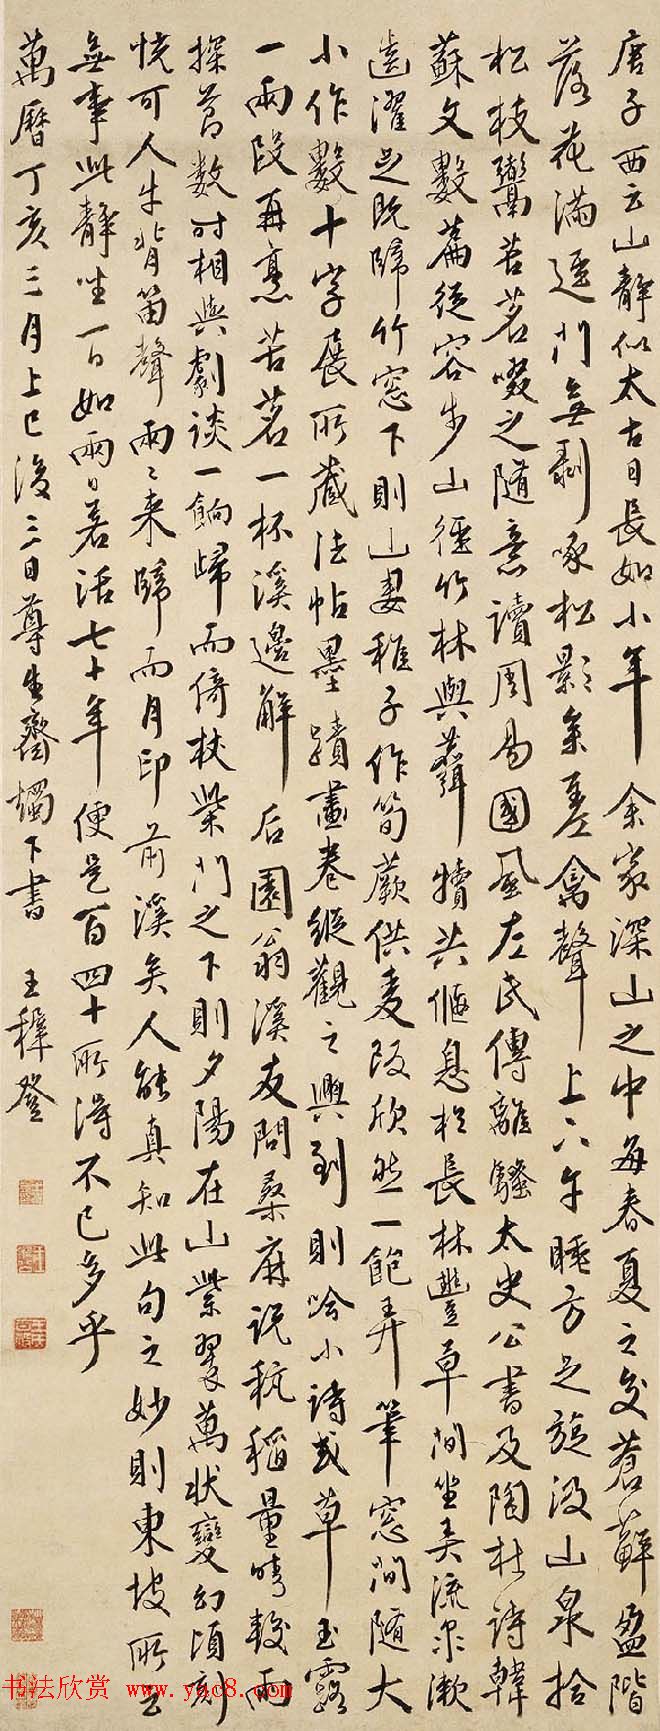 唐子西云山靜似太古日長如小年余家深山之中每春夏之交蒼蘚盈階
落花滿逕門無剝啄松影參差禽聲上下午睡方足旋汲山泉拾
松枝鬻苦茗啜之隨意讀周易國風左氏傳離騷太史公書及陶杜詩韓
蘇文數篇從容步山徑竹林與麛犢共偃息於長林豐草間坐弄流泉漱
齒濯足既歸竹窓下則山妻稚子作筍蕨供麥飯欣然一飽弄筆窓間隨大
小作數十字展所藏法帖墨蹟畫卷縱觀之興到則唫小詩或草玉露
一兩段再烹苦茗一杯溪邊解后園翁溪友問桑麻說秔稻量晴較雨
探節數時相與劇談一餉歸而倚杖柴門之下則夕陽在山紫翠萬狀變幻頃刻
恍可人牛背笛聲兩〻来歸而月印前溪矣人能真知此句之妙則東坡所云
無事此靜坐一日如兩日若活七十年便是百四十所得不已多乎
萬曆丁亥三月上巳後三日尊生齋燭下書 王穉登
书法欣赏 www.yac8.com